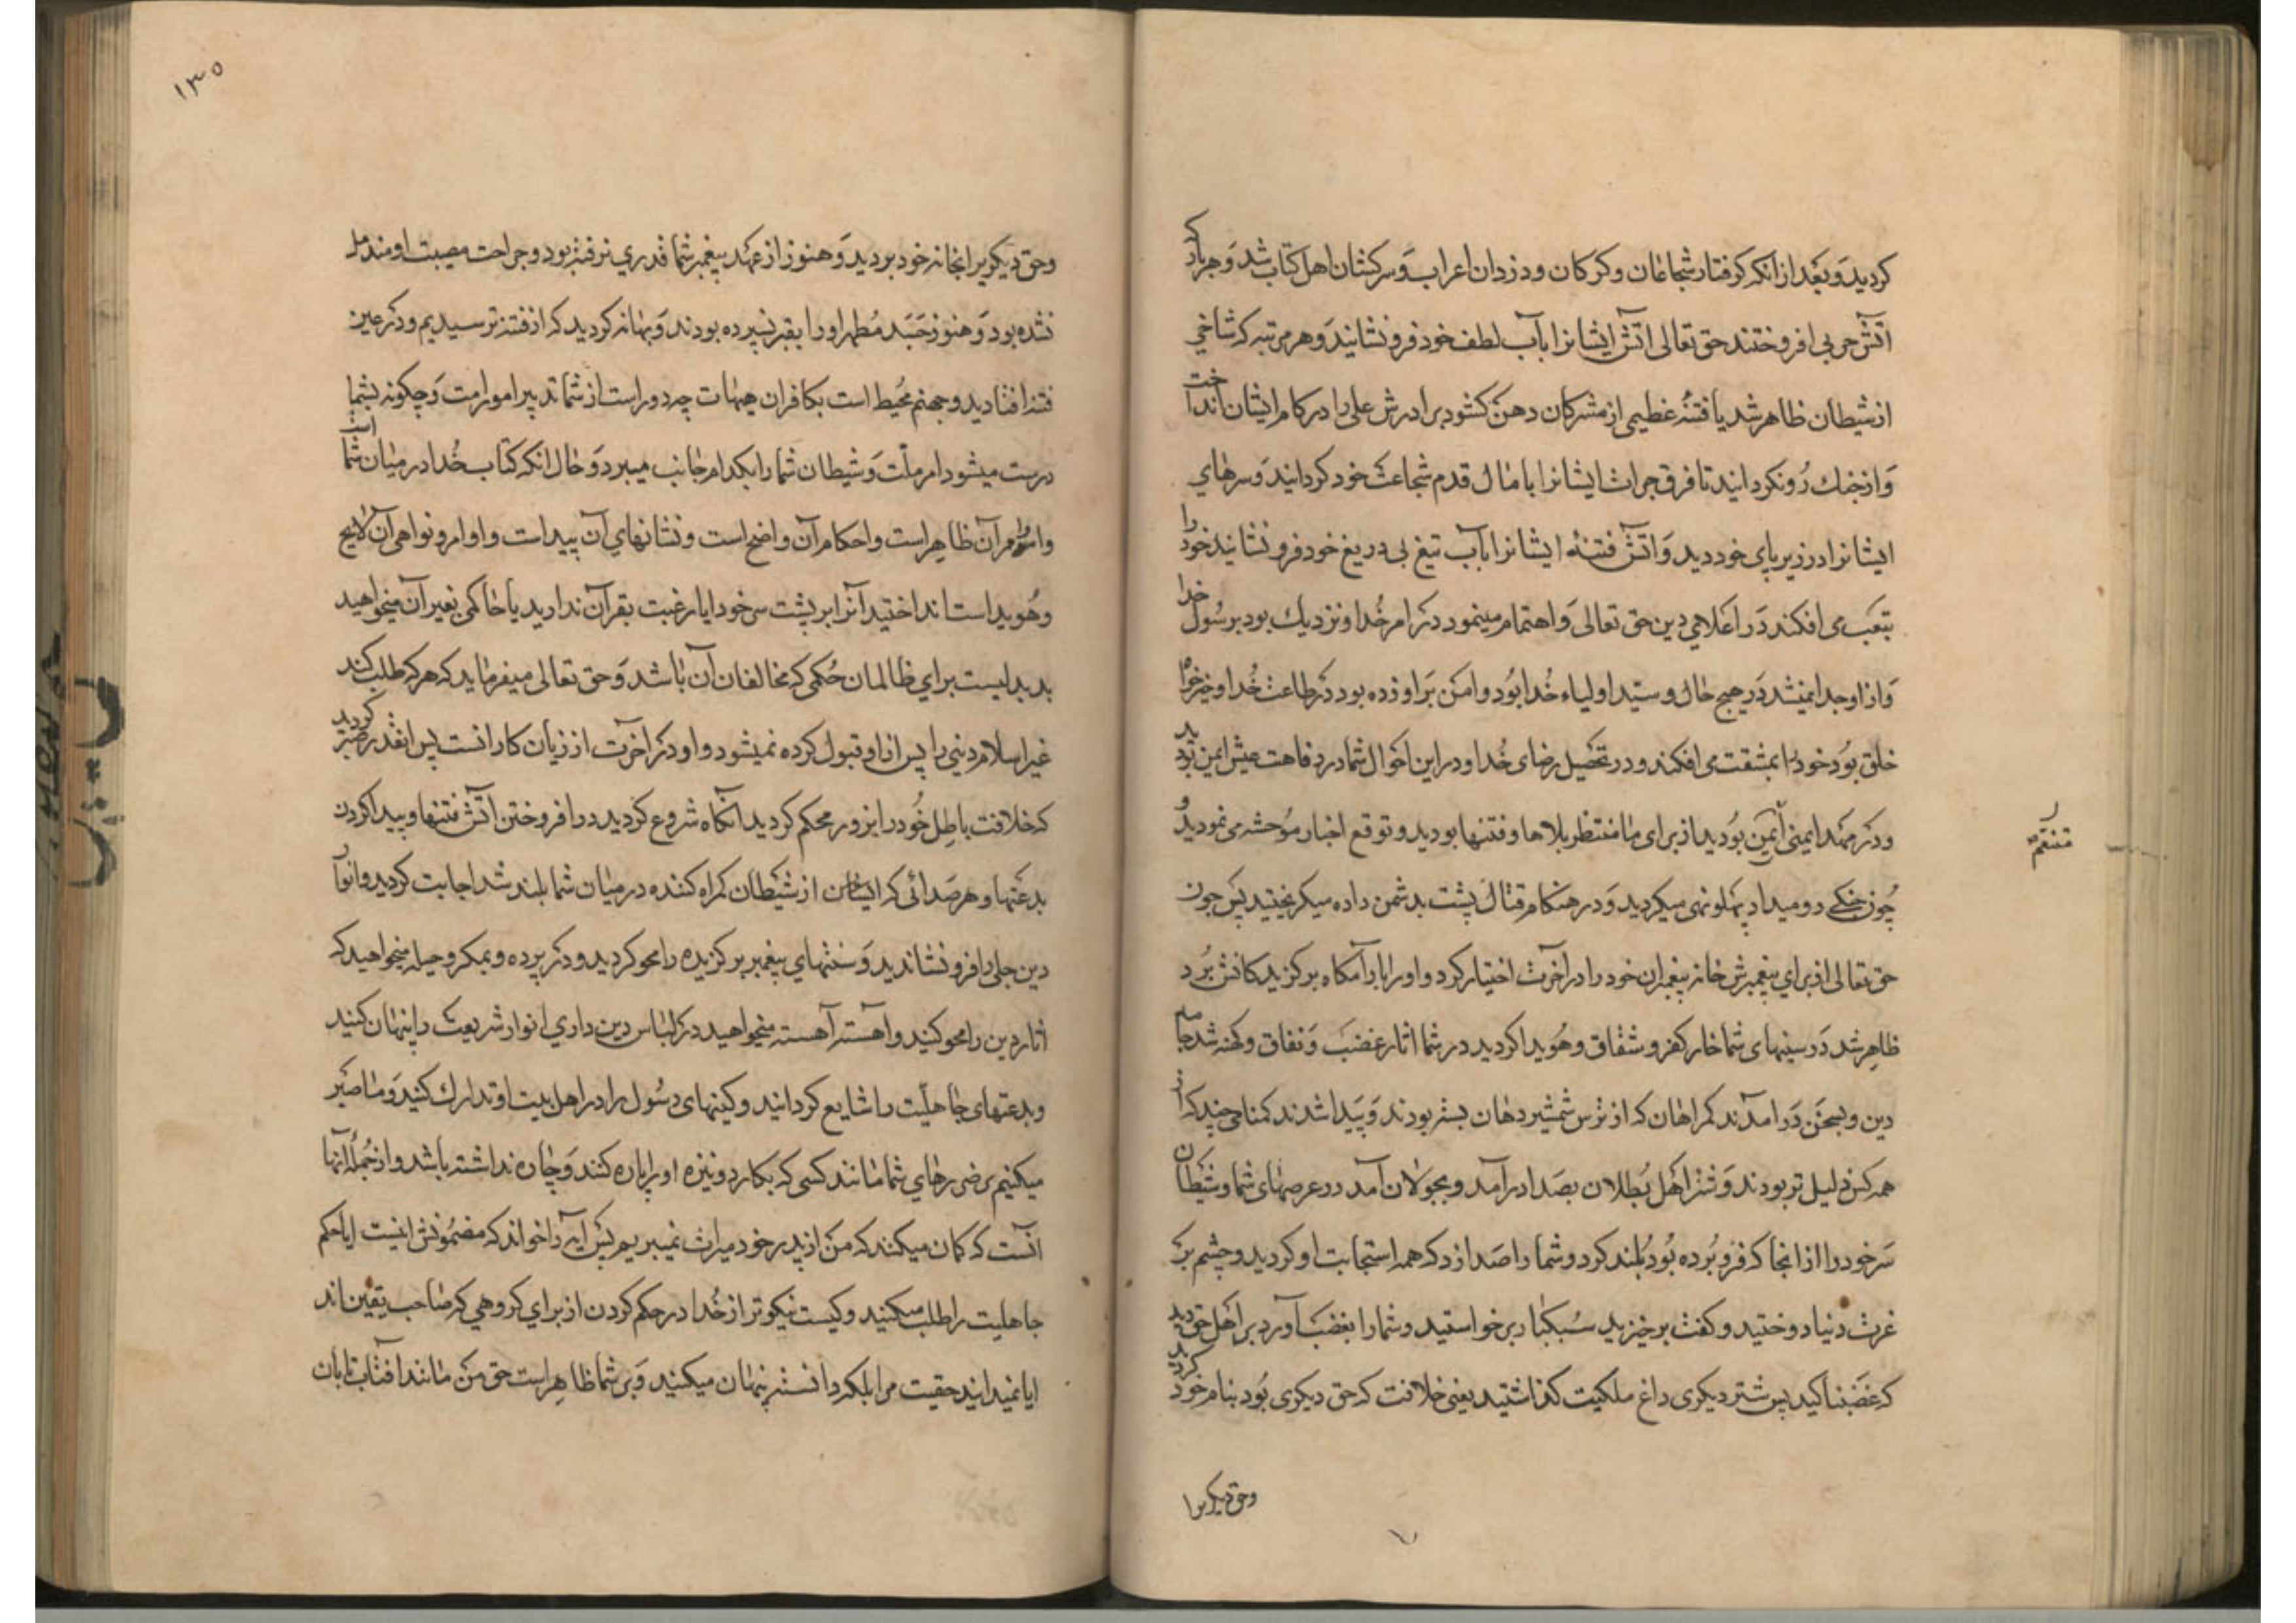 کردید و بعد از آنکه گرفتار شجاعان و گرگان و دزدان اعراب و سرکشان اهل کتاب شد و هر بار که
آتش حربی افروختند حق تعالی آتش ایشانرا بآب لطف خود فرو نشانید و هر مرتبه که شاخی
از شیطان ظاهر شد یا فتنهٔ عظیمی از مشرکان دهن گشود برادرش علی را در کام ایشان انداخت
و از جنك رو نگردانید تا فرق جرات ایشانرا پامال قدم شجاعت خود گردانید و سرهای
ایشانرا در زیر پای خود دید و آتش فتنه ایشانرا بآب تیغ بی دریغ خود فرو نشانید خود را
بتعب می افکند در اعلای دین حق تعالی و اهتمام مینمود در امر خدا و نزدیك بود برسول خدا
و از او جدا نمیشد در هیچ حال و سید اولیاء خدا بود و دامن بر او زده بود در طاعت خدا و خیرخواه
خلق بود خود را بمشقت می افکند و در تحصیل رضای خدا و در این احوال شما در رفاهت عیش ایمن بودید
و در مهد ایمنی ایمن بودید از برای ما منتظر بلاها و فتنها بودید و توقع اخبار موحشه می نمودید و
چون جنگی رو میداد پهلو تهی میکردید و در هنگام قتال پشت بدشمن داده میگریختید پس چون
حق تعالی از برای پیغمبرش خانه پیغمبران خود را در آخرت اختیار کرد و او را بآرامگاه برگزیدگانش برد
ظاهر شد در سینهای شما خار کفر و شقاق و هویدا گردید در شما آثار غضب و نفاق و کهنه شد جامه
دین و بسخن در آمدند گمراهان که از ترس شمشیر دهان بسته بودند و پیدا شدند گمنامی چند که از
همه کس ذلیل تر بودند و شتر اهل بطلان بصدا در آمد و بجولان آمد در عرصهای شما و شیطان
سر خود را از آنجا که فرو برده بود بلند کرد و شما را صدا زد که همه استجابت او کردید و چشم بر
عزت دنیا دوختید و گفت برخیزید سبکبار برخواستید و شما را بغضب آورد بر اهل حق دید
که غضبناکید پس شتر دیگری داغ ملکیت گذاشتید یعنی خلافت که حق دیگری بود بنام خود کردید
وحق دیگری را
وحق دیگری را بخانه خود بردید و هنوز از عهد پیغمبر شما قدری نرفته بود و جراحت مصیبت او مندمل
نشده بود و هنوز جسد مطهر او را بقبر نسپرده بودند و بهانه کردید که از فتنه ترسیدیم و در عین
فتنه افتادید و جهنم محیط است بکافران هیهات چه دور است از شما تدبیر امور امت و چگونه بشما
درست میشود امر ملت و شیطان شما را بکدام جانب میبرد و حال آنکه کتاب خدا در میان شما است
و امور آن ظاهر است و احکام آن واضح است و نشانهای آن پیداست و اوامر و نواهی آن لایح
و هویداست انداختید آنرا بر پشت سر خود ایا رغبت بقرآن ندارید یا حاکمی بغیر آن میخواهید
بد بدلیست برای ظالمان حکمی که مخالفان آن باشد و حق تعالی میفرماید که هر که طلب کند
غیر اسلام دینی را پس از او قبول کرده نمیشود و او در آخرت از زیان کارانست پس انقدر صبر کردید
که خلافت باطل خود را بزور محکم کردید آنگاه شروع کردید در افروختن آتش فتنها و پیدا کردن
بدعتها و هر صدائی که از شیطان گمراه کننده در میان شما بلند شد اجابت کردید و انوار
دین جلی را فرو نشاندید و سنتهای پیغمبر برگزیده را محو کردید و در پرده و بمکر و حیله میخواهید که
آثار دین را محو کنید و آهسته آهسته میخواهید در لباس دین داری انوار شریعت را پنهان کنید
و بدعتهای جاهلیت را شایع گردانید و کینهای رسول را در اهل بیت او تدارك کنید و ما صبر
میکنیم بر ضررهای شما مانند کسی که بکارد و نیزه او را پاره کنند و چاره نداشته باشد و از جملهٔ آنها
آنست که گمان میکنند که من از پدر خود میراث نمیبریم پس آیه را خواند که مضمونش اینست ایا حکم
جاهلیت را طلب میکنید و کیست نیکوتر از خدا در حکم کردن از برای گروهی که صاحب یقین اند
ایا نمیدانید حقیت مرا بلکه دانسته پنهان میکنید و بر شما ظاهر است حق من مانند آفتاب تابان
۱۳۵